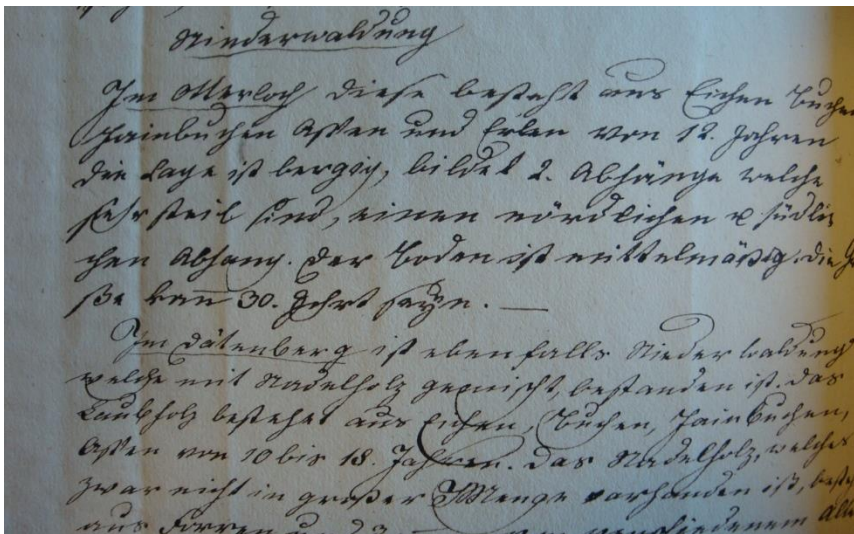 Niederwaldung
Im Otterloch diese besteht aus Eichen Buchen
Hainbuchen Assen und Erlen von 12. Jahren
die Lage ist bergig, bildet 2. Abhänge welche
sehr steil sind, einen nördlichen u südli
chen Abhang. Der Boden ist mittelmäßig. die
ße kann 30. seyn. —
Im Dätenberg ist ebenfalls Niederwaldung
welche mit Nadelholz gemischt, bestanden ist. Das
Laubholz bestehet aus Eichen, Buchen, Hainbuchen,
Assen von 10 bis 18. Jahren. Das Nadelholz, welches
zwar nicht in großer Menge vorhanden ist, beste
aus Forren verschiedenem